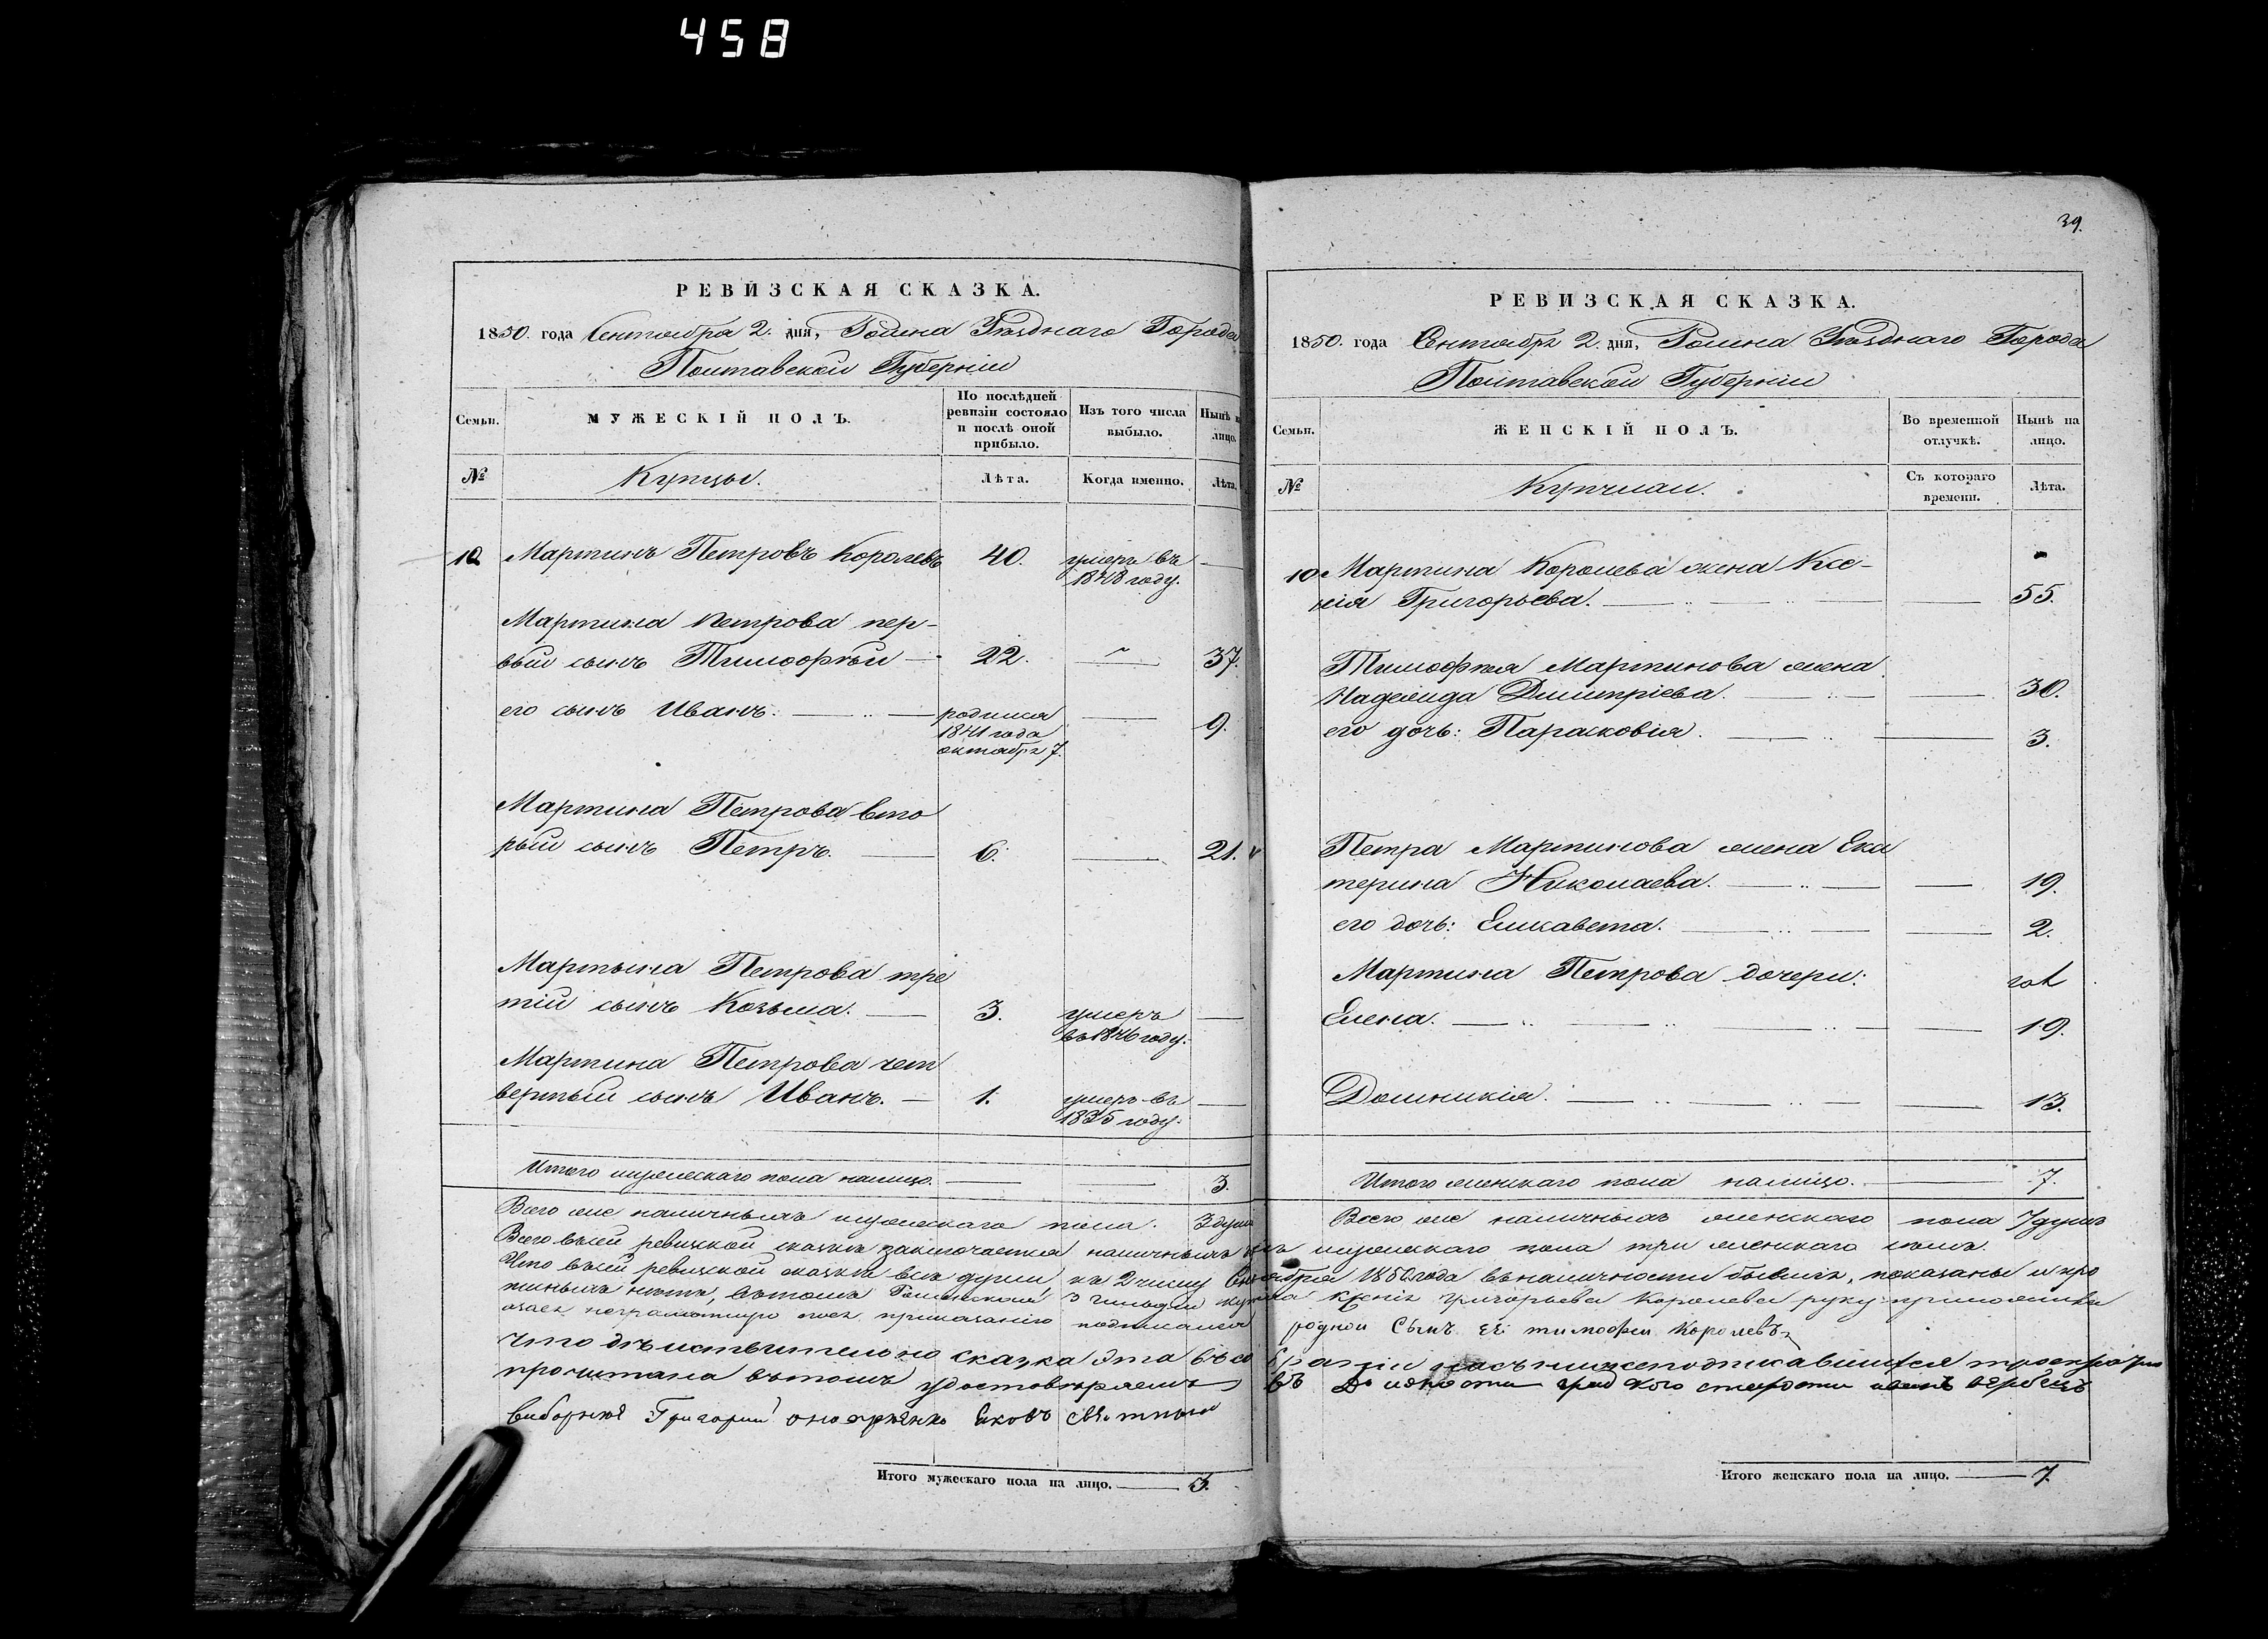 458
РЕВИЗСКАЯ СКАЗКА.
1850. года Сентября 2. дня, Ромна Уѣзднаго Города
Полтавской Губерніи
Семьи.
МУЖЕСКІЙ ПОЛЪ.
По послѣдней ревизіи состояло и послѣ оной прибыло.
Изъ того числа выбыло.
Нынѣ на лицо.
№
Купцы.
Лѣта.
Когда именно.
Лѣта.
10. Мартинъ Петровъ Королевъ 40. умеръ въ —
1848 году.
Мартина Петрова пер-
вый сынъ Тимофѣй — 22. — 37.
его сынъ Иванъ. — родился — 9.
1841 года
октября 7.
Мартина Петрова вто
рый сынъ Петръ. — 6. — 21.
Мартына Петрова тре
тій сынъ Козьма. — 3. умеръ —
въ 1846 году.
Мартина Петрова чет
вертый сынъ Иванъ. — 1. умеръ въ —
1835 году.
Итого мужескаго пола налицо. — — 3.
Всего же наличныхъ мужескаго пола. 3 души
39.
РЕВИЗСКАЯ СКАЗКА.
1850. года Сентября 2. дня, Ромна Уѣзднаго Города
Полтавской Губерніи
Семьи.
ЖЕНСКІЙ ПОЛЪ.
Во временной отлучкѣ.
Нынѣ на лицо.
№
Купчихи.
Съ котораго времени.
Лѣта.
10. Мартина Королева жена Ксе-
нія Григорьева. — — 55.
Тимофѣя Мартинова жена
Надежда Дмитріева. — — 30.
его дочь: Парасковія. — — 3.
Петра Мартинова жена Ека
терина Николаева. — — 19.
его дочь: Елисавета. — — 2.
Мартина Петрова дочери:
Елена. — — 19.
Домникія. — — 13.
Итого женскаго пола налицо. — 7.
Всего же наличныхъ женскаго пола 7 душъ
Всего въ сей ревизской сказкѣ заключается наличныхъ мужескаго пола три женскаго семь.
Что въ сей ревизской сказкѣ всѣ души, къ 2 числу Сентября 1850 года въ наличности бывшіе, показаны и про
нѣтъ, въ томъ Роменской 3 гильдіи Григорьева Королева руку приложила
подписался родной Сынъ её тимофей Королевъ
Что дѣиствително сказка эта въ со браніи насъ нижеподписавшихся
прочитана въ томъ удостовѣряемъ
виборніе Григорий Яковъ
Итого мужескаго пола на лицо. — 3.
Итого женскаго пола на лицо. — 7.